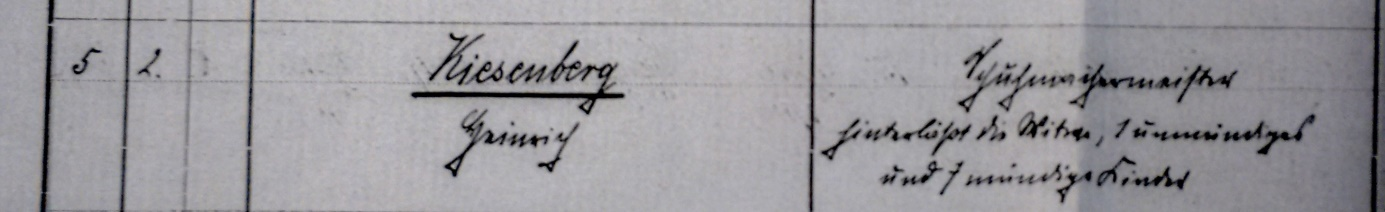 5 2. Kiesenberg Schuhmachermeister
Heinrich hinterläßt die Witwe, 1 unmündiges
und 7 mündige Kinder